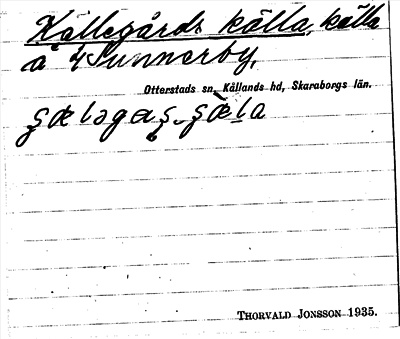 Källegårds källa, källa
å 4 Sunnerby,
Otterstads sn, Kållands hd, Skaraborgs län.
THORVALD JONSSON 1935.